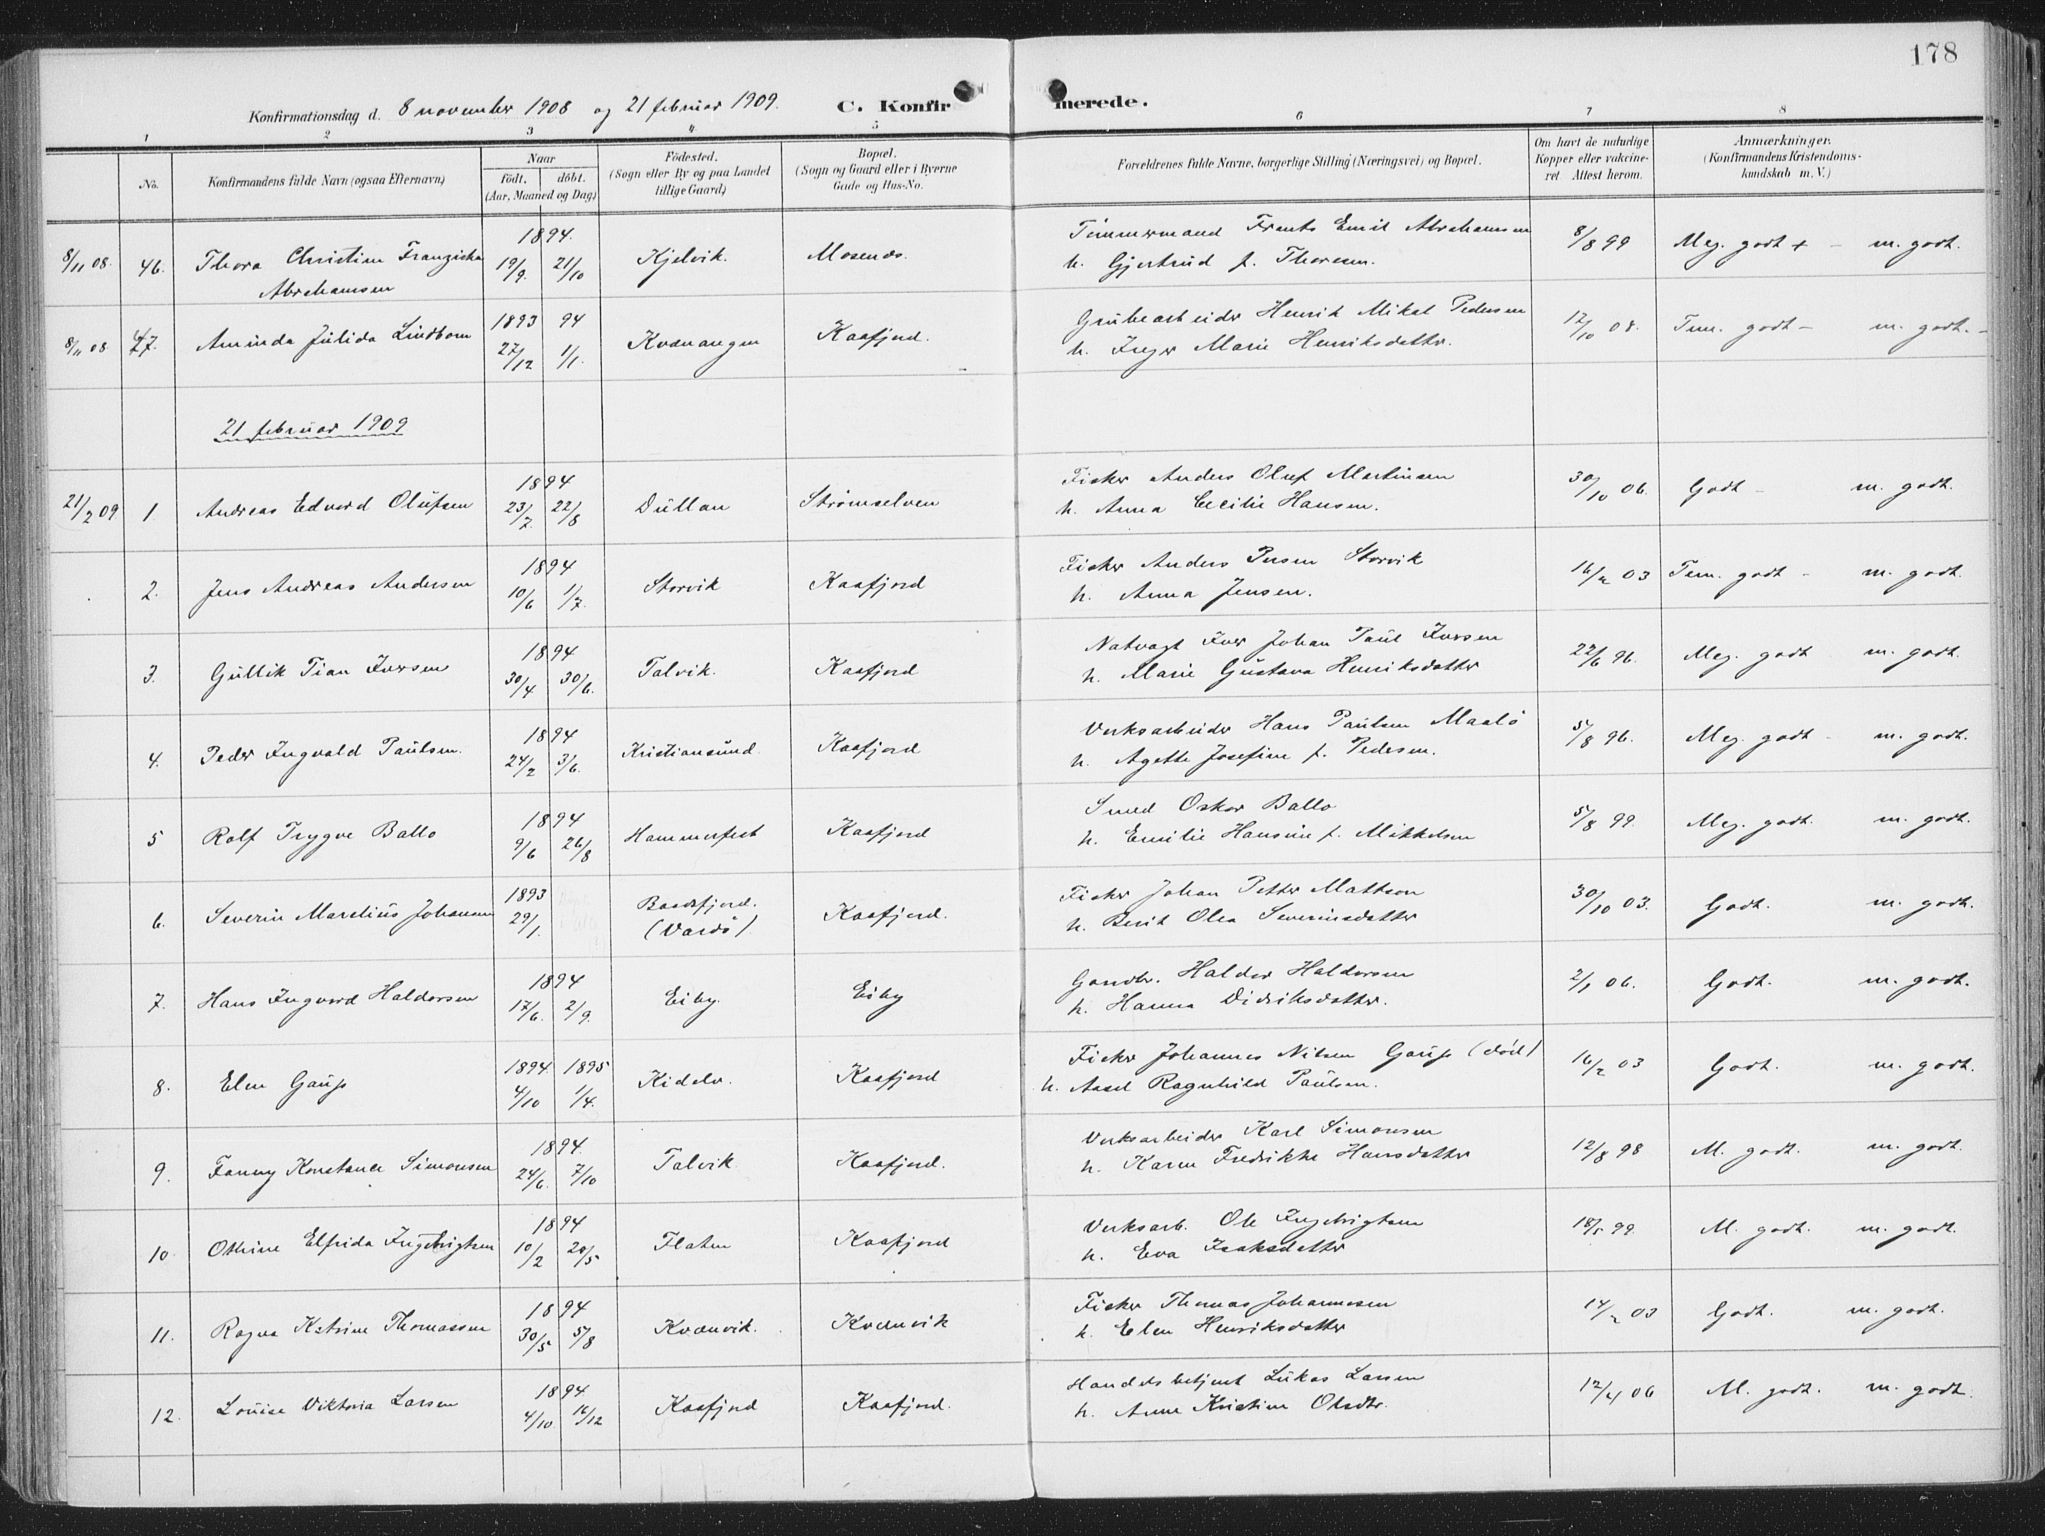 178
Konfirmationsdag d. 8 november 1908 og 21 februar 1909. C. Konfirmerede.
1 2 3 4 5 6 7 8
No.
Konfirmandens fulde Navn (ogsaa Efternavn)
Naar
födt. döbt.
(Aar, Maaned og Dag)
Födested.
(Sogn eller By og paa Landet
tillige Gaard)
Bopæl.
(Sogn og Gaard eller i Byerne
Gade og Hus-No.
Forældrenes fulde Navne, borgerlige Stilling (Næringsvei) og Bopæl.
Om havt de naturlige
Kopper eller vakcine-
ret Attest herom.
Anmærkninger.
(Konfirmandens Kristendoms-
kundskab m. V.)
8/11 08. 46. Thora Christine Franziska Abrahamsen 1894. 19/9. 21/10 Kjelvik. Mosenes. Tömmermand Frants Emil Abrahamsen
h. Gjertrud f. Thoresen. 8/8 99 Meg. godt + - m. godt.
8/11 08 47. Aminda Julida Lindbom 1893 94 27/12 1/1. Kvænangen Kaafjord. Grubearbeider Henrik Mikal Pedersen
h. Inger Marie Henriksdatter. 12/10 08. Tem. godt - m. godt. -
21 februar 1909
21/2 09 1. Andreas Edvard Olufsen 1894 23/7. 22/8 Dullan Strömselven Fisker Anders Oluf Martinsen
h. Anna Cecilie Hansen. 30/10 06. Godt - m. godt.
2. Jens Andreas Andersen 1894 10/6 1/7. Storvik Kaafjord Fisker Anders Persen Storvik
h. Anna Jensen. 16/2 03 Tem. godt - m. godt.
3. Gullik Tian Iversen 1894 30/4 30/6. Talvik. Kaafjord Natvagt Iver Johan Paul Iversen
h. Marie Gustava Henriksdatter 22/6 96. Meg. godt m. godt.
4. Peder Ingvald Paulsen. 1894 24/2 3/6. Kristiansund Kaafjord Verksarbeider Hans Paulsen Maalö
h. Agette Josefine f. Pedersen. 5/8 96. Meg. godt - m. godt.
5 Rolf Trygve Ballo 1894 9/6 26/8 Hammerfest Kaafjord Smed Oskar Ballo
h. Emilie Hansine f. Mikkelsen 5/8 99. Meg. godt. m. godt.
6. Severin Marelius Johansen 1893 29/1. Baadsfjord. (Vardö) Kaafjord. Fisker Johan Petter Mattson
h. Berit Olea Severinsdatter 30/10 03. Godt. m. godt.
7. Hans Ingvard Haldorsen 1894 17/6. 2/9. Eiby. Eiby Gaardbr. Haldor Haldorsen
h. Hanna Didriksdatter. 2/1 06. Godt. m. godt.
8. Elen Gaup 1894. 1895 4/10 1/4. Kidelv. Kaafjord Fisker Johannes Nilsen Gaup (död)
h. Assel Ragnhild Paulsen. 16/2 03 Godt. m. godt.
9. Fanny Konstance Simonsen 1894. 24/6. 7/10 Talvik Kaafjord. Verksarbeider Karl Simonsen
h. Karen Fredrikke Hansdatter 12/8 98 M. godt. m. godt.
10. Othine Elfrida Ingebrigtsen 1894 10/2 20/5 Flaten Kaafjord Verksarb. Ole Ingebrigtsen
h. Eva Isaksdatter 18/5 99. M. godt. m. godt.
11. Ragna Katrine Thomassen 1894 30/5 5/8 Kvænvik. Kvænvik Fisker Thomas Johannesen
h. Elen Henriksdatter 14/2 03 Godt. m. godt.
12. Louise Viktoria Larsen 1894. 4/10. 16/12 Kaafjord Kaafjord. Handelsbetjent Lukas Larsen
h. Anne Kristine Olsdtr. 12/4 06 M. godt. m. godt.